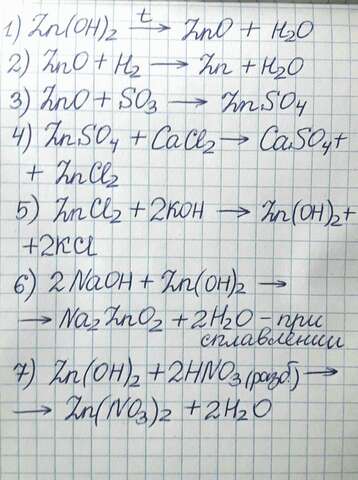 1) Zn(OH)₂ —t→ ZnO + H₂O
2) ZnO + H₂ → Zn + H₂O
3) ZnO + SO₃ → ZnSO₄
4) ZnSO₄ + CaCl₂ → CaSO₄ +
+ ZnCl₂
5) ZnCl₂ + 2KOH → Zn(OH)₂ +
+2KCl
6) 2NaOH + Zn(OH)₂ →
→ Na₂ZnO₂ + 2H₂O – при
сплавлении
7) Zn(OH)₂ + 2HNO₃ (разб.) →
→ Zn(NO₃)₂ + 2H₂O